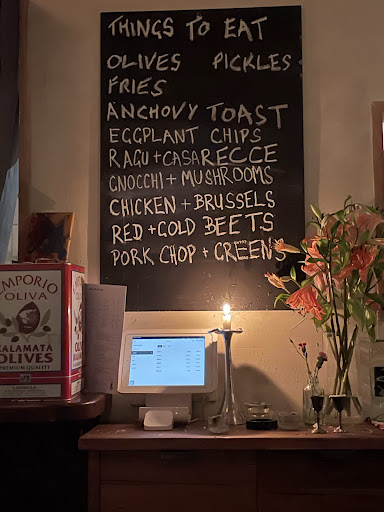 THINGS TO EAT
OLIVES PICKLES
FRIES
ANCHOVY TOAST
EGGPLANT CHIPS
RAGU + CASARECCE
GNOCCHI + MUSHROOMS
CHICKEN + BRUSSELS
RED + GOLD BEETS
PORK CHOP + GREENS
EMPORIO
OLIVA
KALAMATA
OLIVES
PREMIUM QUALITY